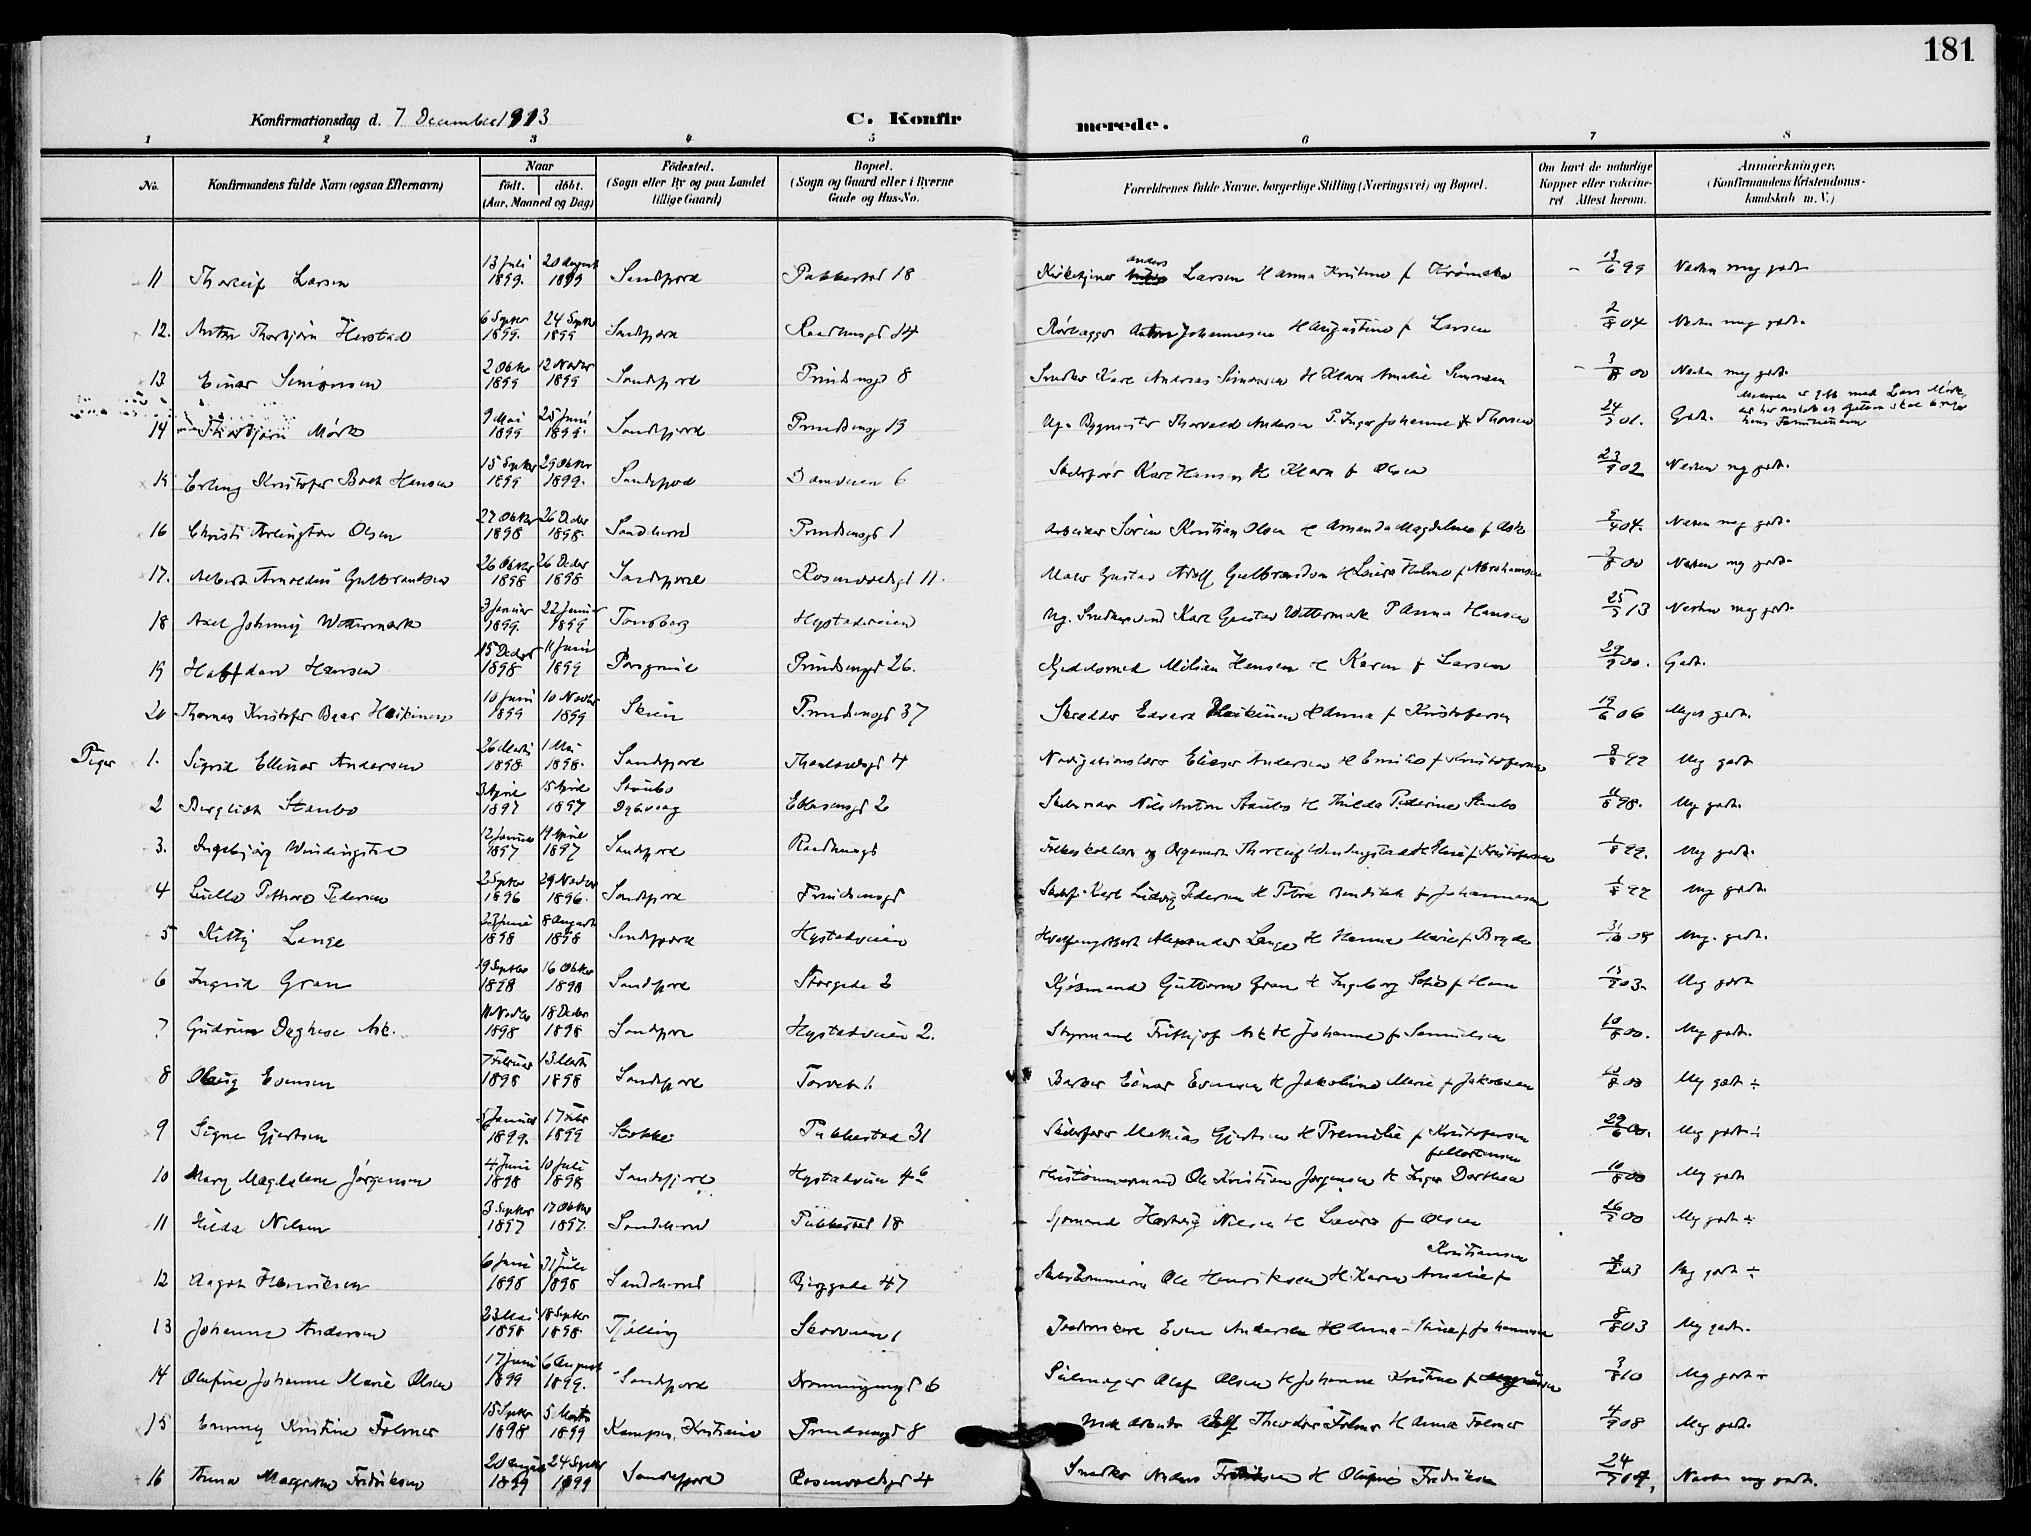 181
Konfirmationsdag d. 7 December 1913
C. Konfirmerede.
1 2 3 4 5 6 7 8
No.
Konfirmandens fulde Navn (ogsaa Efternavn)
Naar
født. døbt.
(Aar, Maaned og Dag)
Fødested.
(Sogn eller By og paa Landet
tillige Gaard)
Bopæl.
(Sogn og Gaard eller i Byerne
Gade og Hus-No.
Forældrenes fulde Navne, borgerlige Stilling (Næringsvei) og Bopæl.
Om havt de naturlige
Kopper eller vakcine-
ret Attest herom.
Anmærkninger.
(Konfirmandens Kristendoms-
kundskab m. V.)
11 Thorleif Larsen 13 Juli 1899. 20 August 1899 Sandefjord Pukkestad 18 Kirketjener Anders Larsen H Hanna Kristine f 13/6 99 Næsten meg godt
12. Thorbjørn Herstad 6 Septbr 1899. 24 Septbr 1899 Sandefjord Raadhusgd 14 Rørlægger Anton Johannesen H Augustine f Larsen 2/8 04 Næsten meg godt.
13 Einar Simonsen 2 Oktbr 1899 12 Novbr 1899 Sandefjord Prindsensgd 8 Snedker Karl Andreas Simonsen H Klara Amalie Simonsen 3/8 00 Næsten meg godt.
14 Thorbjørn Mørk 9 Mai 1899 25 Juni 1899. Sandefjord Prindsensg 13 Ug. Bygmester Thorvald Andersen P. Inger Johanne Thorsen 24/5 01. Godt. Moderen er gift med Lars Mørk,
15 Erling Kristofer Bach Hansen 15 Septbr 1899 29 Oktbr 1899. Sandefjord 6 Karl Hansen H Klara f Olsen 23/9 02 Næsten mg godt.
16 Christi Arlington Olsen 27 Oktbr 1898 26 Decbr 1898. Sandeherred Prindsensgd 1 Arbeider Søren Kristian Olsen H Amanda Magdalene f Ask 04. Næsten meg godt.
17. Albert Gulbrandsen 26 Oktbr 1898 26 Decbr 1898 Sandefjord Rosenvoldsgd 11. Maler Gustav Adolf Gulbrandsen H Laura Halma f Abrahamsen 2/8 00 Næsten mg godt.
18 Axel Johnny Wettermark 3 Januar 1899. 22 Januar 1899 Tønsberg Hystadveien Ug. Snedkersvend Karl Gustav Wettermark P Anna Hansen 25/5 13 Næsten meg godt.
19 Halfdan Hansen 15 Decbr 1898 11 Juni 1899 Porsgrund Prindsensgd 26. Kjedelsmed Milian Hansen H Karen f Larsen 29/9 00. Godt.
20 Thomas Kristofer Baar Heikinen 10 Juni 1899 10 Novbr 1899 Skien Prindsensgd 37 Skrædder Edvard Heikinen H Anna f Kristofersen 19/6 06 Meget godt.
Piger 1. Sigrid Ellinor Andersen 26 Marts 1898 1 Mai 1898. Sandefjord 4 Navigationslærer Elieser Andersen H Emilie f Kristofersen 8/8 99 Meg godt
2 Bergliot Staubo 3 April 1897 15 April 1897 Staubo Dybvaag 2 Nils Anton Staubo H Thilda Pederine Staubo 11/8 98. Mg godt.
3. Ingebjørg Windingstad 12 Januar 1897 19 April 1897 Sandefjord Raadhusgd Folkeskolelærer og Organist Thorleif Windingstad H f Kristofersen 1/8 99. Meg godt.
4 Petthora Pedersen 2 Septbr 1896 29 Novbr 1896. Sandefjord Prindsensgd Karl Ludvig Pedersen H Petra Bendikte f Johannessen 1/8 99 Mg godt.
5 Kitty Lange 23 Juni 1898 8 August 1898 Sandefjord Hystadveien Alexander Lange H Hanna Marie f Bryde 31/10 08 Meg. godt.
6 Ingrid Gran 19 Septbr 1898 16 Oktbr 1898 Sandefjord Storgade 2 Kjøbmand Guttorm Gran H Ingeborg Sofie f 03. Meg godt
7 Gudrun Daghese Ask. 11 Novbr 1898 18 Decbr 1898 Sandefjord Hystadveien 2. Styrmand Frithjof Ask H Johanne f Samuelsen 10/8 00. Meg godt.
8 Olaug Evensen 7 Februar 1898 13 Marts 1898 Sandefjord Torvet 1. Barber Einar Evensen H Jakobine Marie f Jakobsen 10/8 00 Mg godt ÷
9 Signe Gjertsen 5 Januar 1899. 17 Febr 1899 Stokke Pukkestad 31 Mathias Gjertsen H f Kristofersen 29/6 00. Mg godt ÷
10 Mary Magdalene Jørgensen 4 Juni 1898 10 Juli 1898 Sandefjord Hystadveien 46 Hustømmermand Ole Kristian Jørgensen H Inger Dorthea f Mortensen 10/8 00 Mg godt
11 Hilda Nilsen 3 Septbr 1897 17 Oktbr 1897. Sandeherred Pukkestad 18 Sjømand Hartvig Nilsen H Laura f Olsen 26/9 00 Meg godt ÷
12 Aagot Henriksen 6 Juni 1898 31 Juli 1898 Sandeherred Bjerggade 47 Ole Henriksen H Karen Amalie f Kristiansen 03 Mg godt ÷
13 Johanne Andersen 23 Mai 1898 18 Septbr 1898. Tjølling Skovveien 1 Even Andersen H Anna f Johannesen 8/8 03 Mg godt.
14 Olufine Johanne Marie Olsen 17 Juni 1899 6 August 1899. Sandefjord Dronningensgd 6 Seilmager Olaf Olsen H Johanne Kristine f 3/8 10 Meg godt ÷
15 Emmy Kristine Folmer 15 Septbr 1898 5 Marts 1899 Kampen, Kristiania Prindsensgd 8 Theodor Folmer H Anna Folmer 4/9 08 Meg godt.
16 Anna Margrethe Fredriksen 20 August 1899 24 Septbr 1899 Sandefjord Rosenvoldsgd 4 Snedker Anders Fredriksen H Olufine Fredriksen 24/5 07, Næsten mg godt.